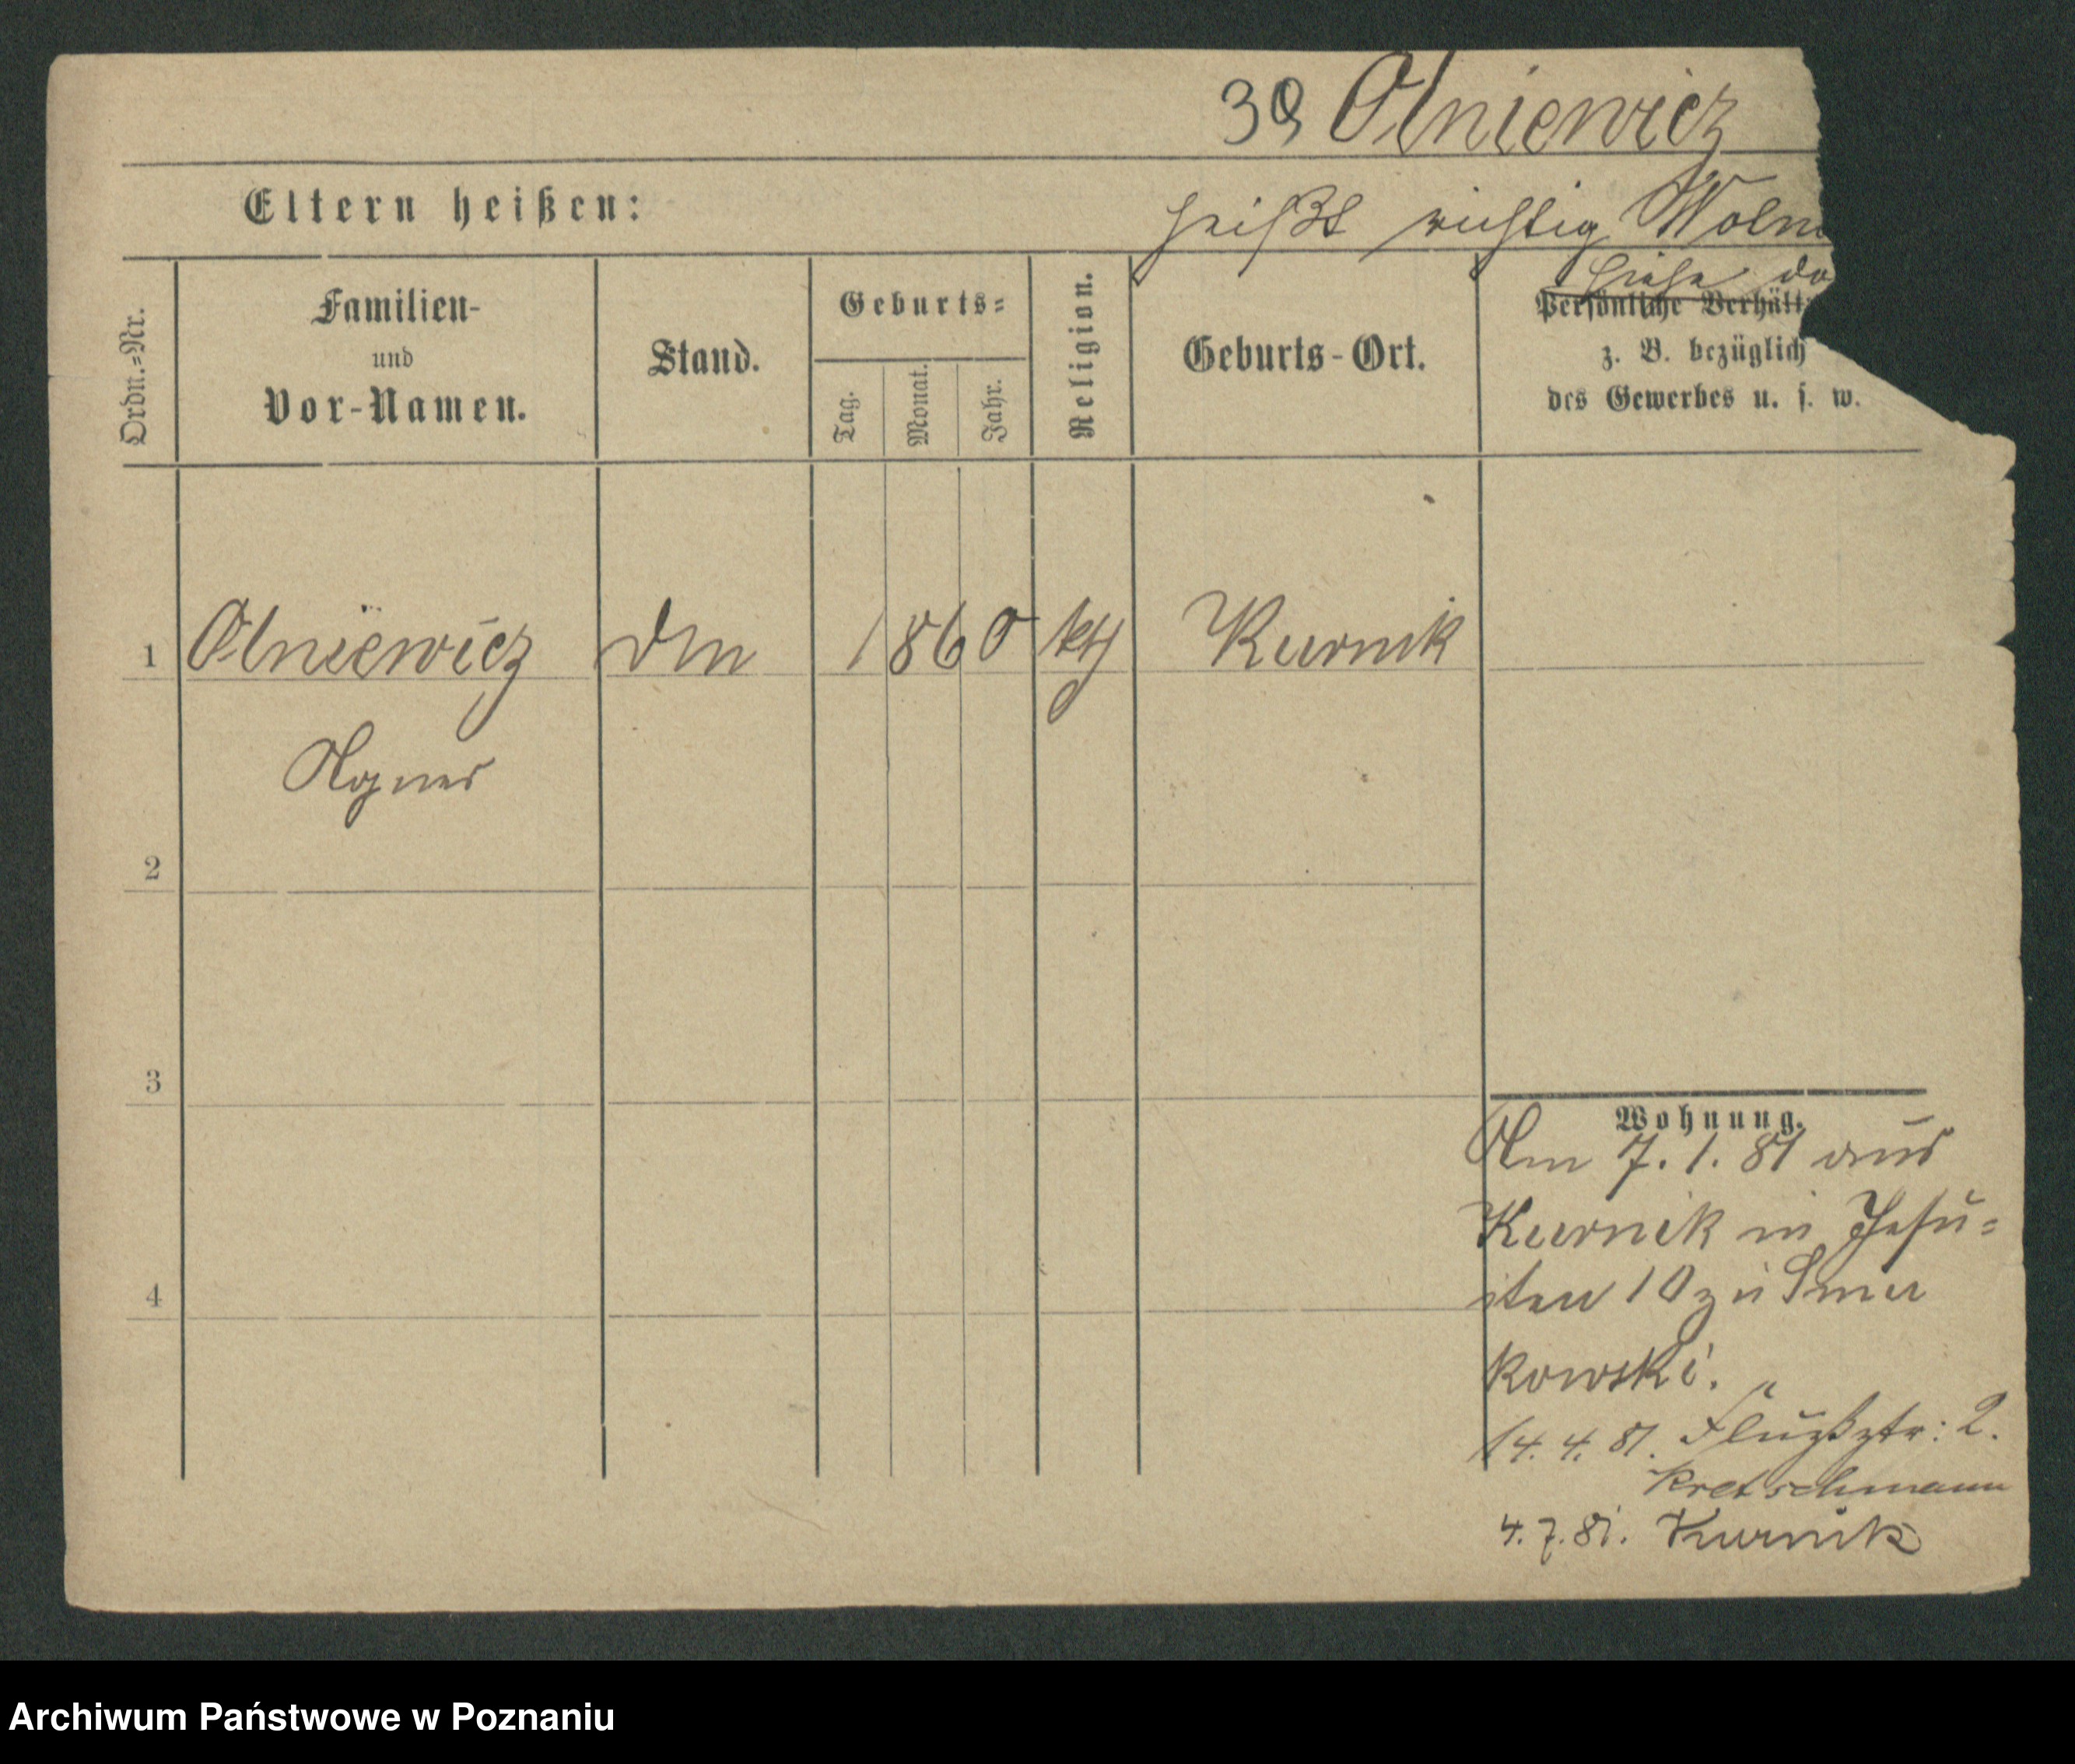 39 Olniewicz
Eltern heißen:
heißt richtig Woln
Siehe da
Ordn.=Nr.
Familien-
und
Vor-Namen.
Stand.
Geburts=
Tag.
Monat.
Jahr.
Religion.
Geburts-Ort.
Persönliche Verhält
z. B. bezüglich
des Gewerbes u. s. w.
1 Olniewicz 1860 kth Kurnik
Agnes
2
3
4
Wohnung.
Am 7.1.81 aus
Kurnik in Jesu=
iten 10 zu Smu
kowski.
14.4.81.
Kretschmann
4.7.81. Kurnik
Archiwum Państwowe w Poznaniu